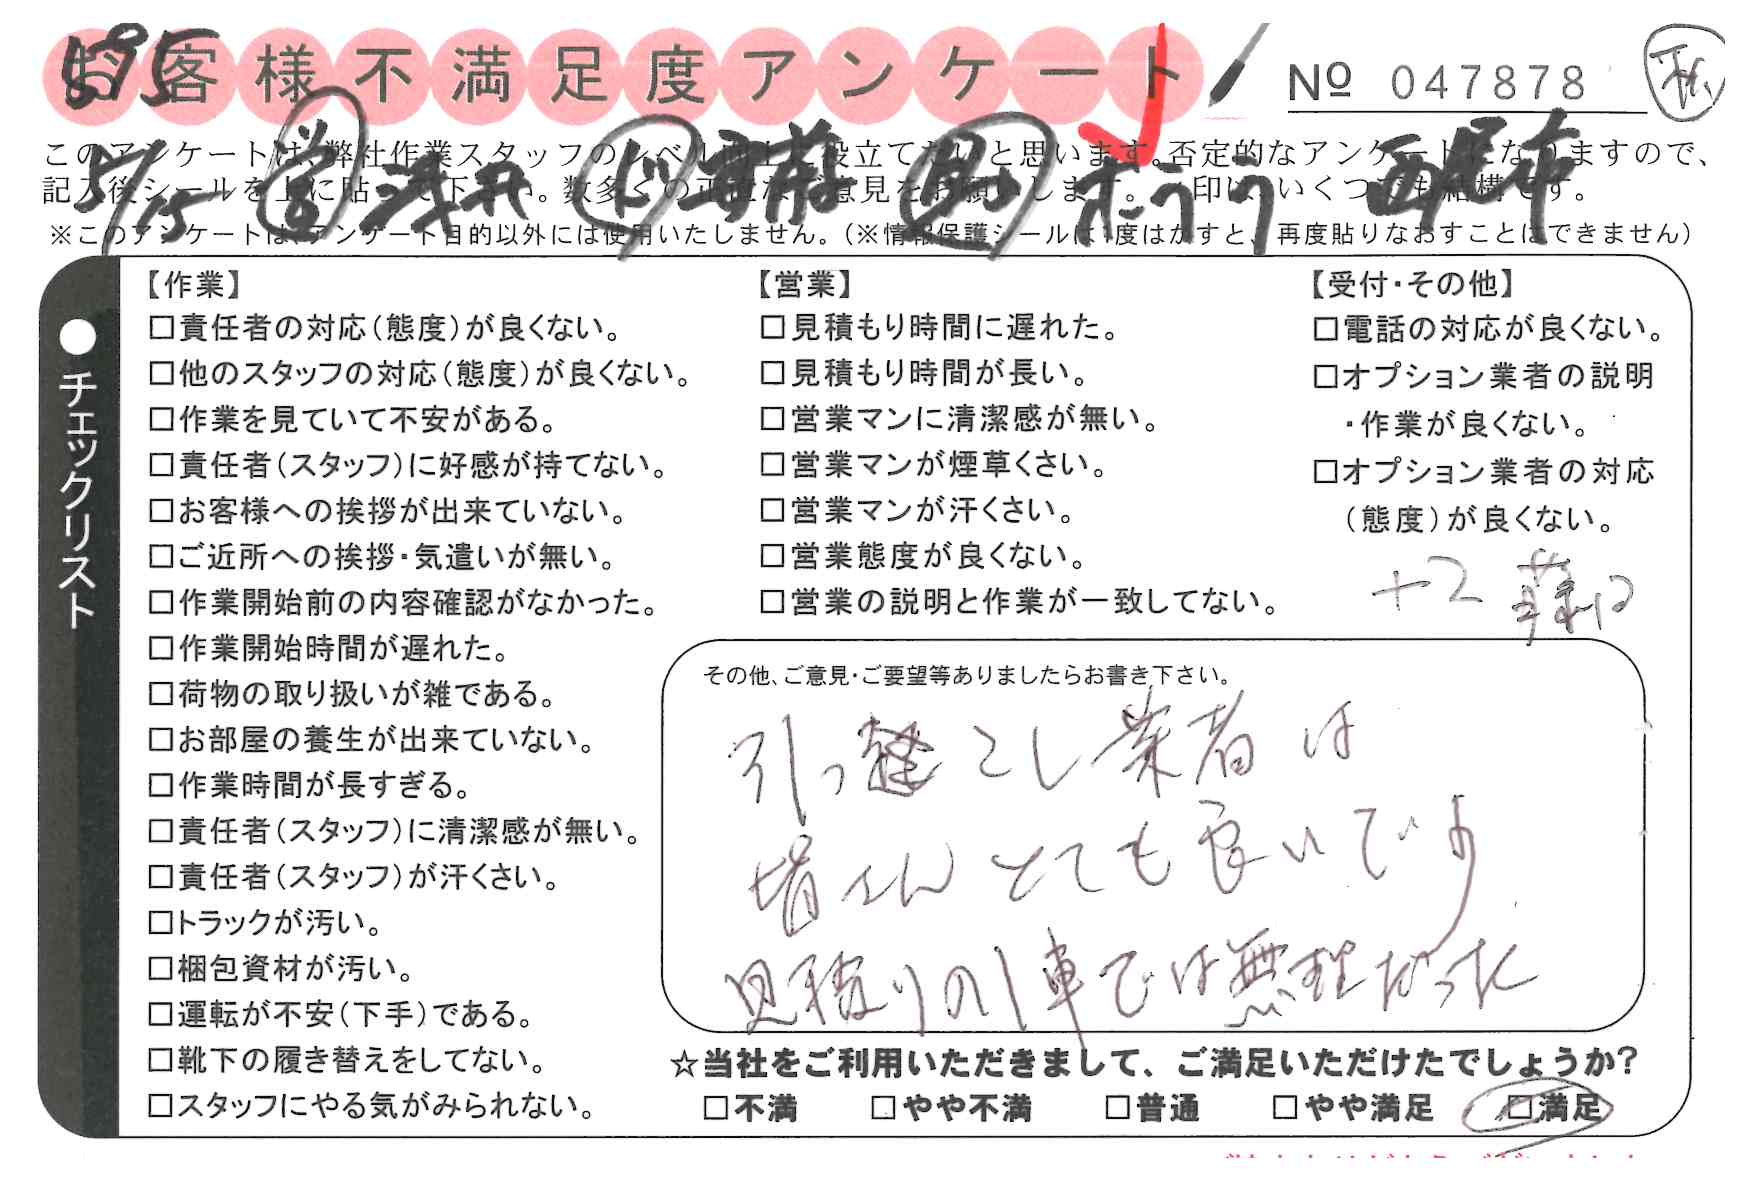 お客様不満足度アンケート
№ 047878
595
5/15 営 浅井 ド 斉藤 助 ぼうり 西尾市
このアンケートは、弊社作業スタッフのレベル向上に役立てたいと思います。否定的なアンケートになりますので、
記入後シールを上に貼って下さい。数多くの正直なご意見をお願いします。 印は、いくつでも結構です。
※このアンケートは、アンケート目的以外には使用いたしません。（※情報保護シールは1度はがすと、再度貼りなおすことはできません）
●チェックリスト
【作業】
□責任者の対応（態度）が良くない。
□他のスタッフの対応（態度）が良くない。
□作業を見ていて不安がある。
□責任者（スタッフ）に好感が持てない。
□お客様への挨拶が出来ていない。
□ご近所への挨拶・気遣いが無い。
□作業開始前の内容確認がなかった。
□作業開始時間が遅れた。
□荷物の取り扱いが雑である。
□お部屋の養生が出来ていない。
□作業時間が長すぎる。
□責任者（スタッフ）に清潔感が無い。
□責任者（スタッフ）が汗くさい。
□トラックが汚い。
□梱包資材が汚い。
□運転が不安（下手）である。
□靴下の履き替えをしてない。
□スタッフにやる気がみられない。
【営業】
□見積もり時間に遅れた。
□見積もり時間が長い。
□営業マンに清潔感が無い。
□営業マンが煙草くさい。
□営業マンが汗くさい。
□営業態度が良くない。
□営業の説明と作業が一致してない。
【受付・その他】
□電話の対応が良くない。
□オプション業者の説明
・作業が良くない。
□オプション業者の対応
（態度）が良くない。
+2
その他、ご意見・ご要望等ありましたらお書き下さい。
引っ越こし業者は
皆さんとても良いです
見積りの1車では無理だった
☆当社をご利用いただきまして、ご満足いただけたでしょうか？
□不満 □やや不満 □普通 □やや満足 □満足